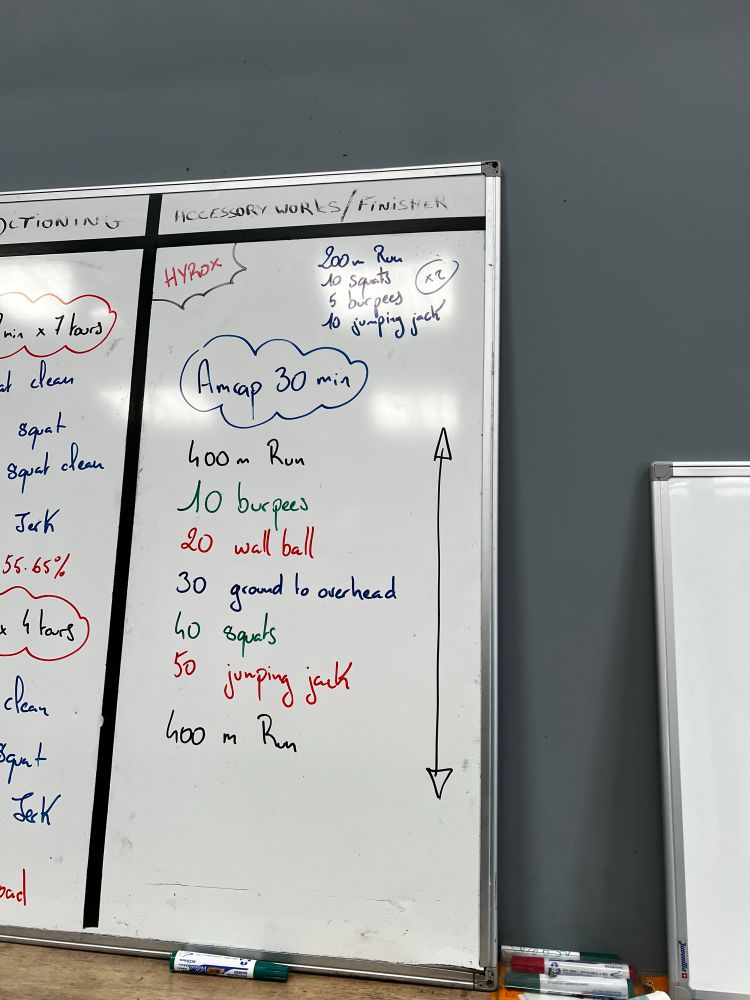 ACCESSORY WORKS/FINISHER
HYROX
200m Run
10 squats
5 burpees
10 jumping jack
x2
Amcap 30 min
400 m Run
10 burpees
20 wall ball
30 ground to overhead
40 squats
50 jumping jack
400 m Run
min x 7 tours
clean
squat
squat clean
Jerk
55.65%
x 4 tours
clean
squat
Jerk
Juvenilia